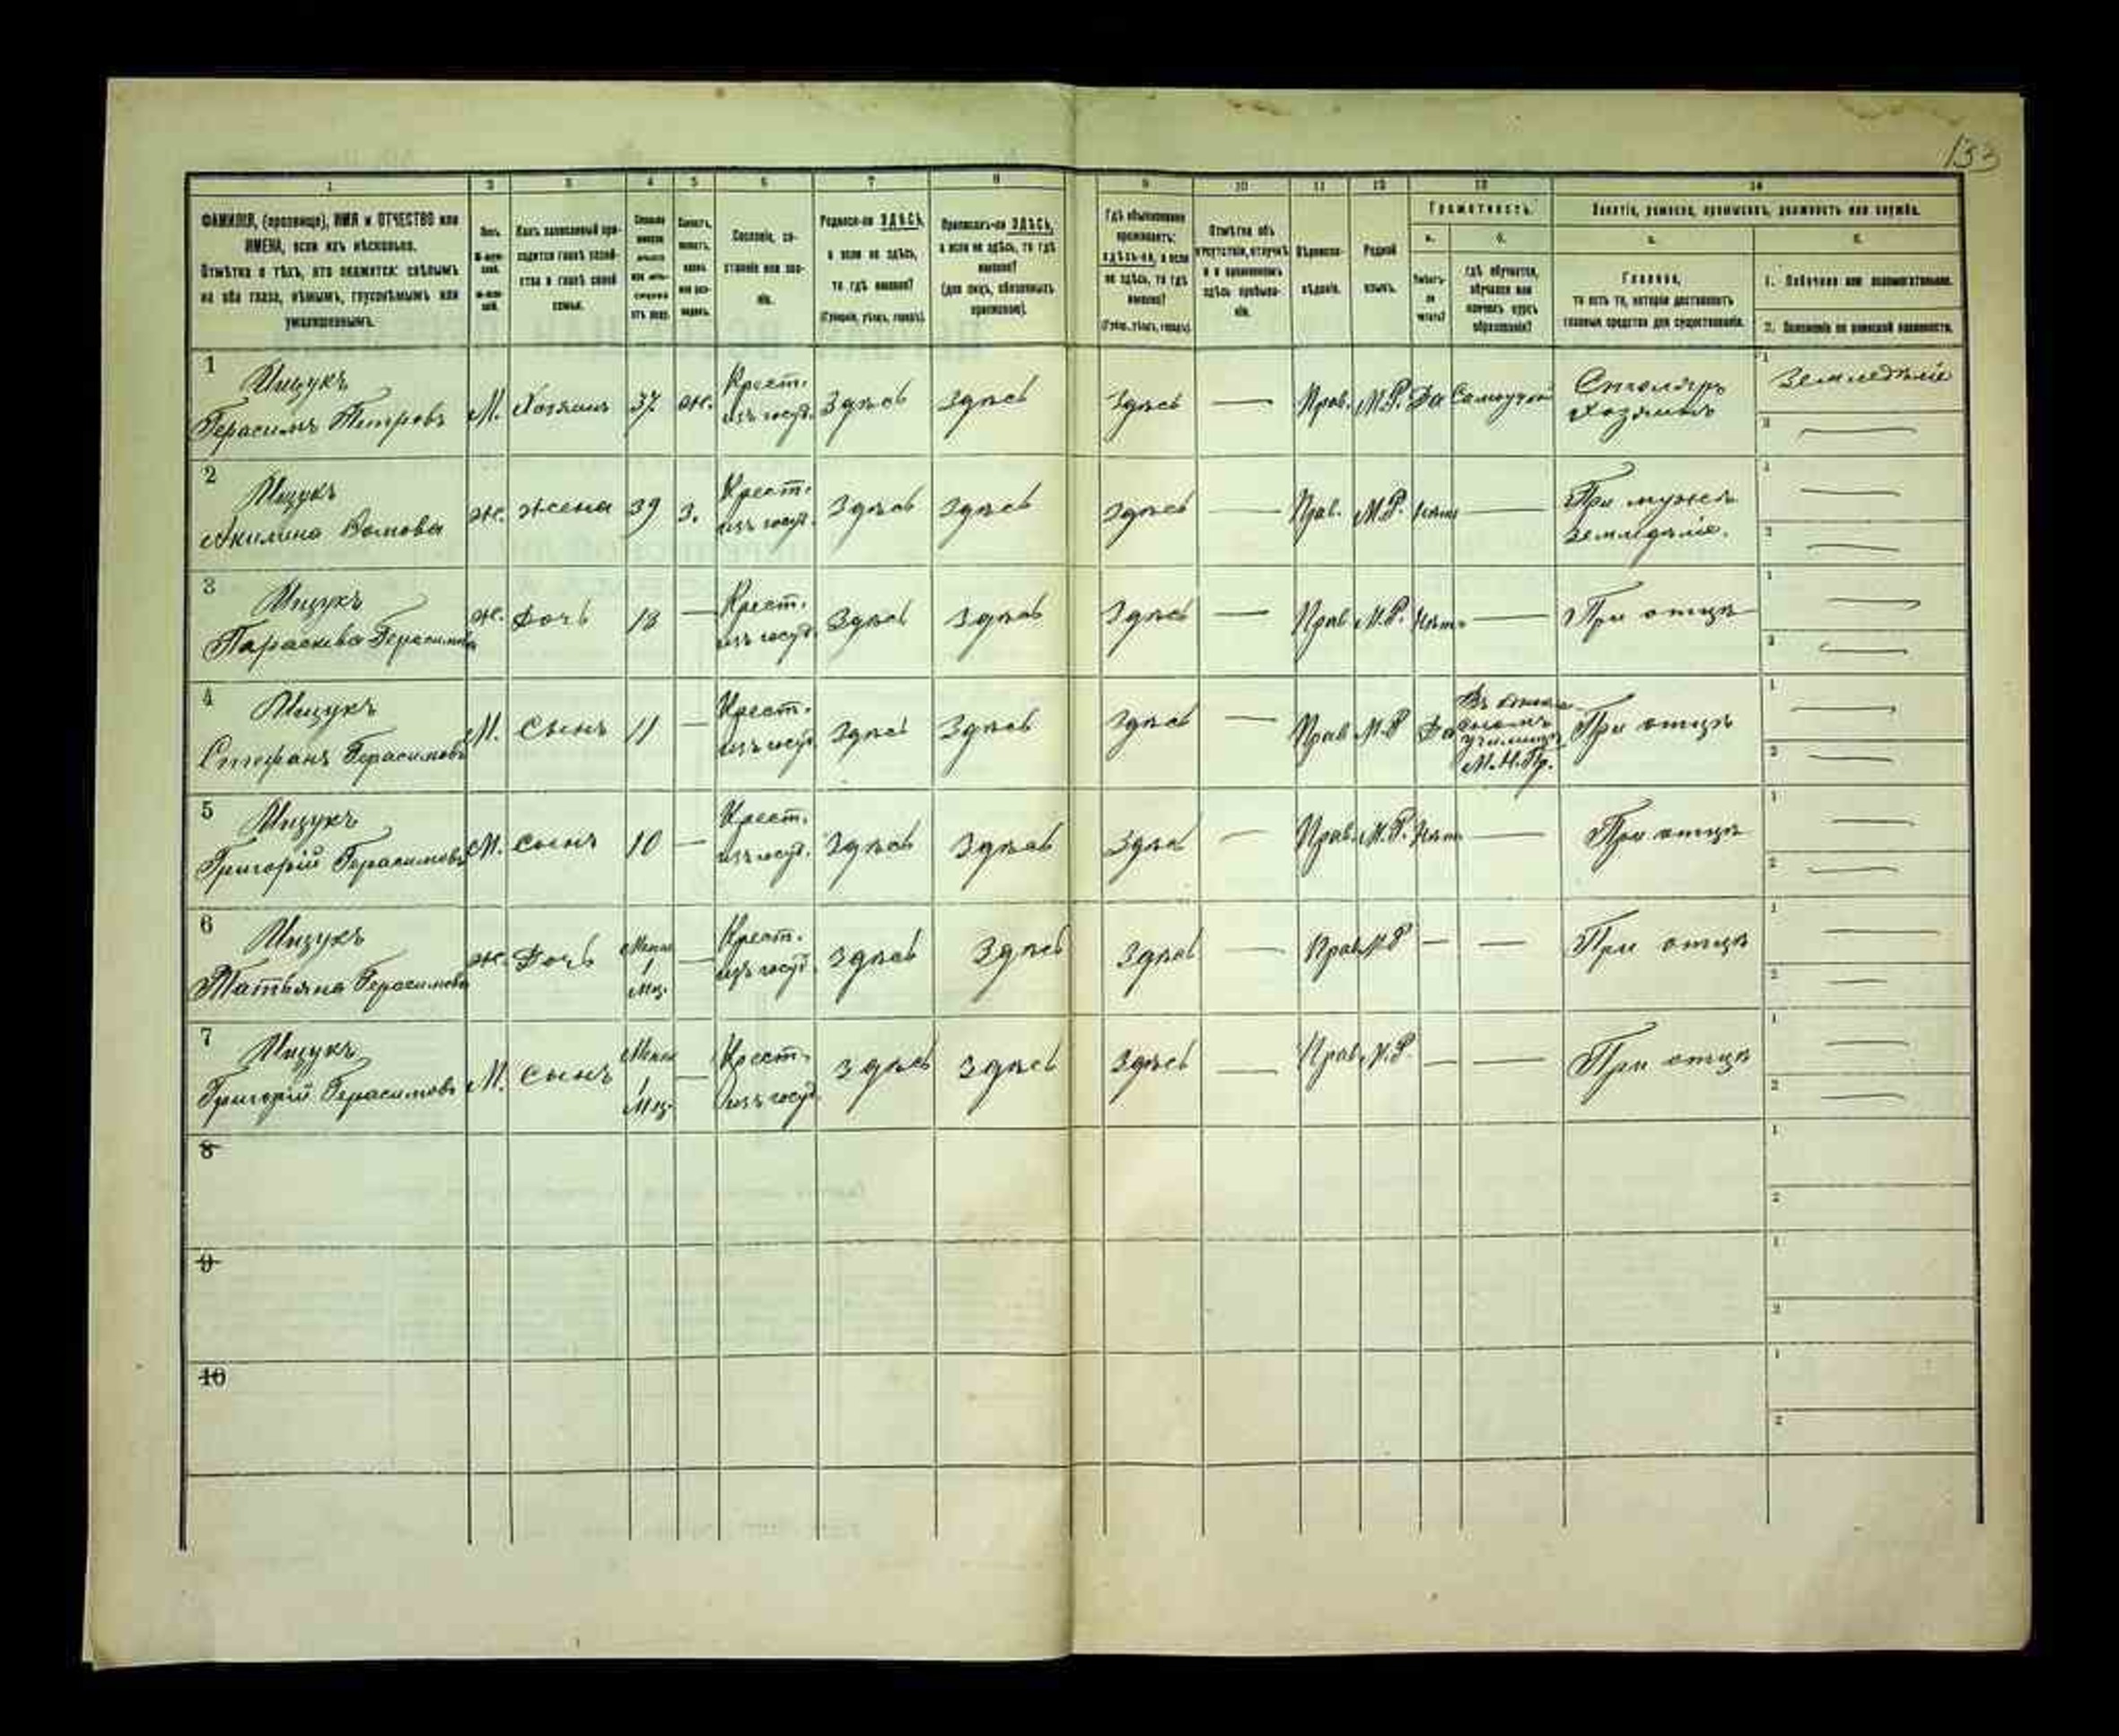 133
1 2 3 4 5 6 7 8 9 10 11 12 13 14
ФАМИЛІЯ, (прозвище), ИМЯ и ОТЧЕСТВО или
ИМЕНА, если ихъ нѣсколько.
Отмѣтка о тѣхъ, кто окажется: слѣпымъ
на оба глаза, нѣмымъ, глухонѣмымъ или
умалишеннымъ.
Какъ записанный при-
ходится главѣ хозяй-
ства и главѣ своей
семьи.
Сословіе, со-
стояніе или зва-
ніе.
Родился-ли ЗДѢСЬ,
а если не здѣсь,
то гдѣ именно?
(Губернія, уѣздъ, городъ).
Приписанъ-ли ЗДѢСЬ,
а если не здѣсь, то гдѣ
именно?
(для лицъ, обязанныхъ
припискою).
Гдѣ обыкновенно
проживаетъ:
здѣсь-ли, а если
не здѣсь, то гдѣ
именно?
(Губер., уѣздъ, городъ).
Отмѣтка объ
отсутствіи, отлучкѣ
и о временномъ
здѣсь пребыва-
ніи.
Вѣроиспо-
вѣданіе.
Родной
языкъ.
Грамотность.
а. б.
Умѣетъ-
ли
читать?
гдѣ обучается,
обучался или
кончилъ курсъ
образованія?
Занятіе, ремесло, промыселъ, должность или служба.
а. б.
Главное,
то есть то, которое доставляетъ
главныя средства для существованія.
1. Побочное или вспомогательное.
2. Положеніе по воинской повинности.
1 Мизукъ
Герасимъ Петровъ М. Хозяинъ 37 ж. Крест. изъ госуд. Здѣсь Здѣсь Здѣсь — Прав. М.Р. Да Самоучкой Столяръ Хозяинъ 1 Земледѣліе 2 —
2 Мизукъ
Акилина Ж. Жена 39 З. Крест. изъ госуд. Здѣсь Здѣсь Здѣсь — Прав. М.Р. Нѣтъ — При мужѣ земледѣліе. 1 — 2 —
3 Мизукъ
Параскева Герасимова Ж. Дочь 13 — Крест. изъ госуд. Здѣсь Здѣсь Здѣсь — Прав М.Р. Нѣтъ — При отцѣ 1 — 2 —
4 Мизукъ
Стефанъ Герасимовъ М. Сынъ 11 — Крест. изъ госуд. Здѣсь Здѣсь Здѣсь — Прав М.Р Да училищѣ М.Н.Пр. При отцѣ 1 — 2 —
5 Мизукъ
Григорій Герасимовъ М. Сынъ 10 — Крест. изъ госуд. Здѣсь Здѣсь Здѣсь — Прав. М.Р. Нѣтъ — При отцѣ 1 — 2 —
6 Мизукъ
Татьяна Герасимова Ж. Дочь Менѣе 1 Мц. — Крест. изъ госуд. Здѣсь Здѣсь Здѣсь — Прав М.Р — — При отцѣ 1 — 2 —
7 Мизукъ
Григорій Герасимовъ М. Сынъ Менѣе 1 Мц. — Крест. изъ госуд. Здѣсь Здѣсь Здѣсь — Прав. М.Р. — — При отцѣ 1 — 2 —
8 1 2
9 1 2
10 1 2